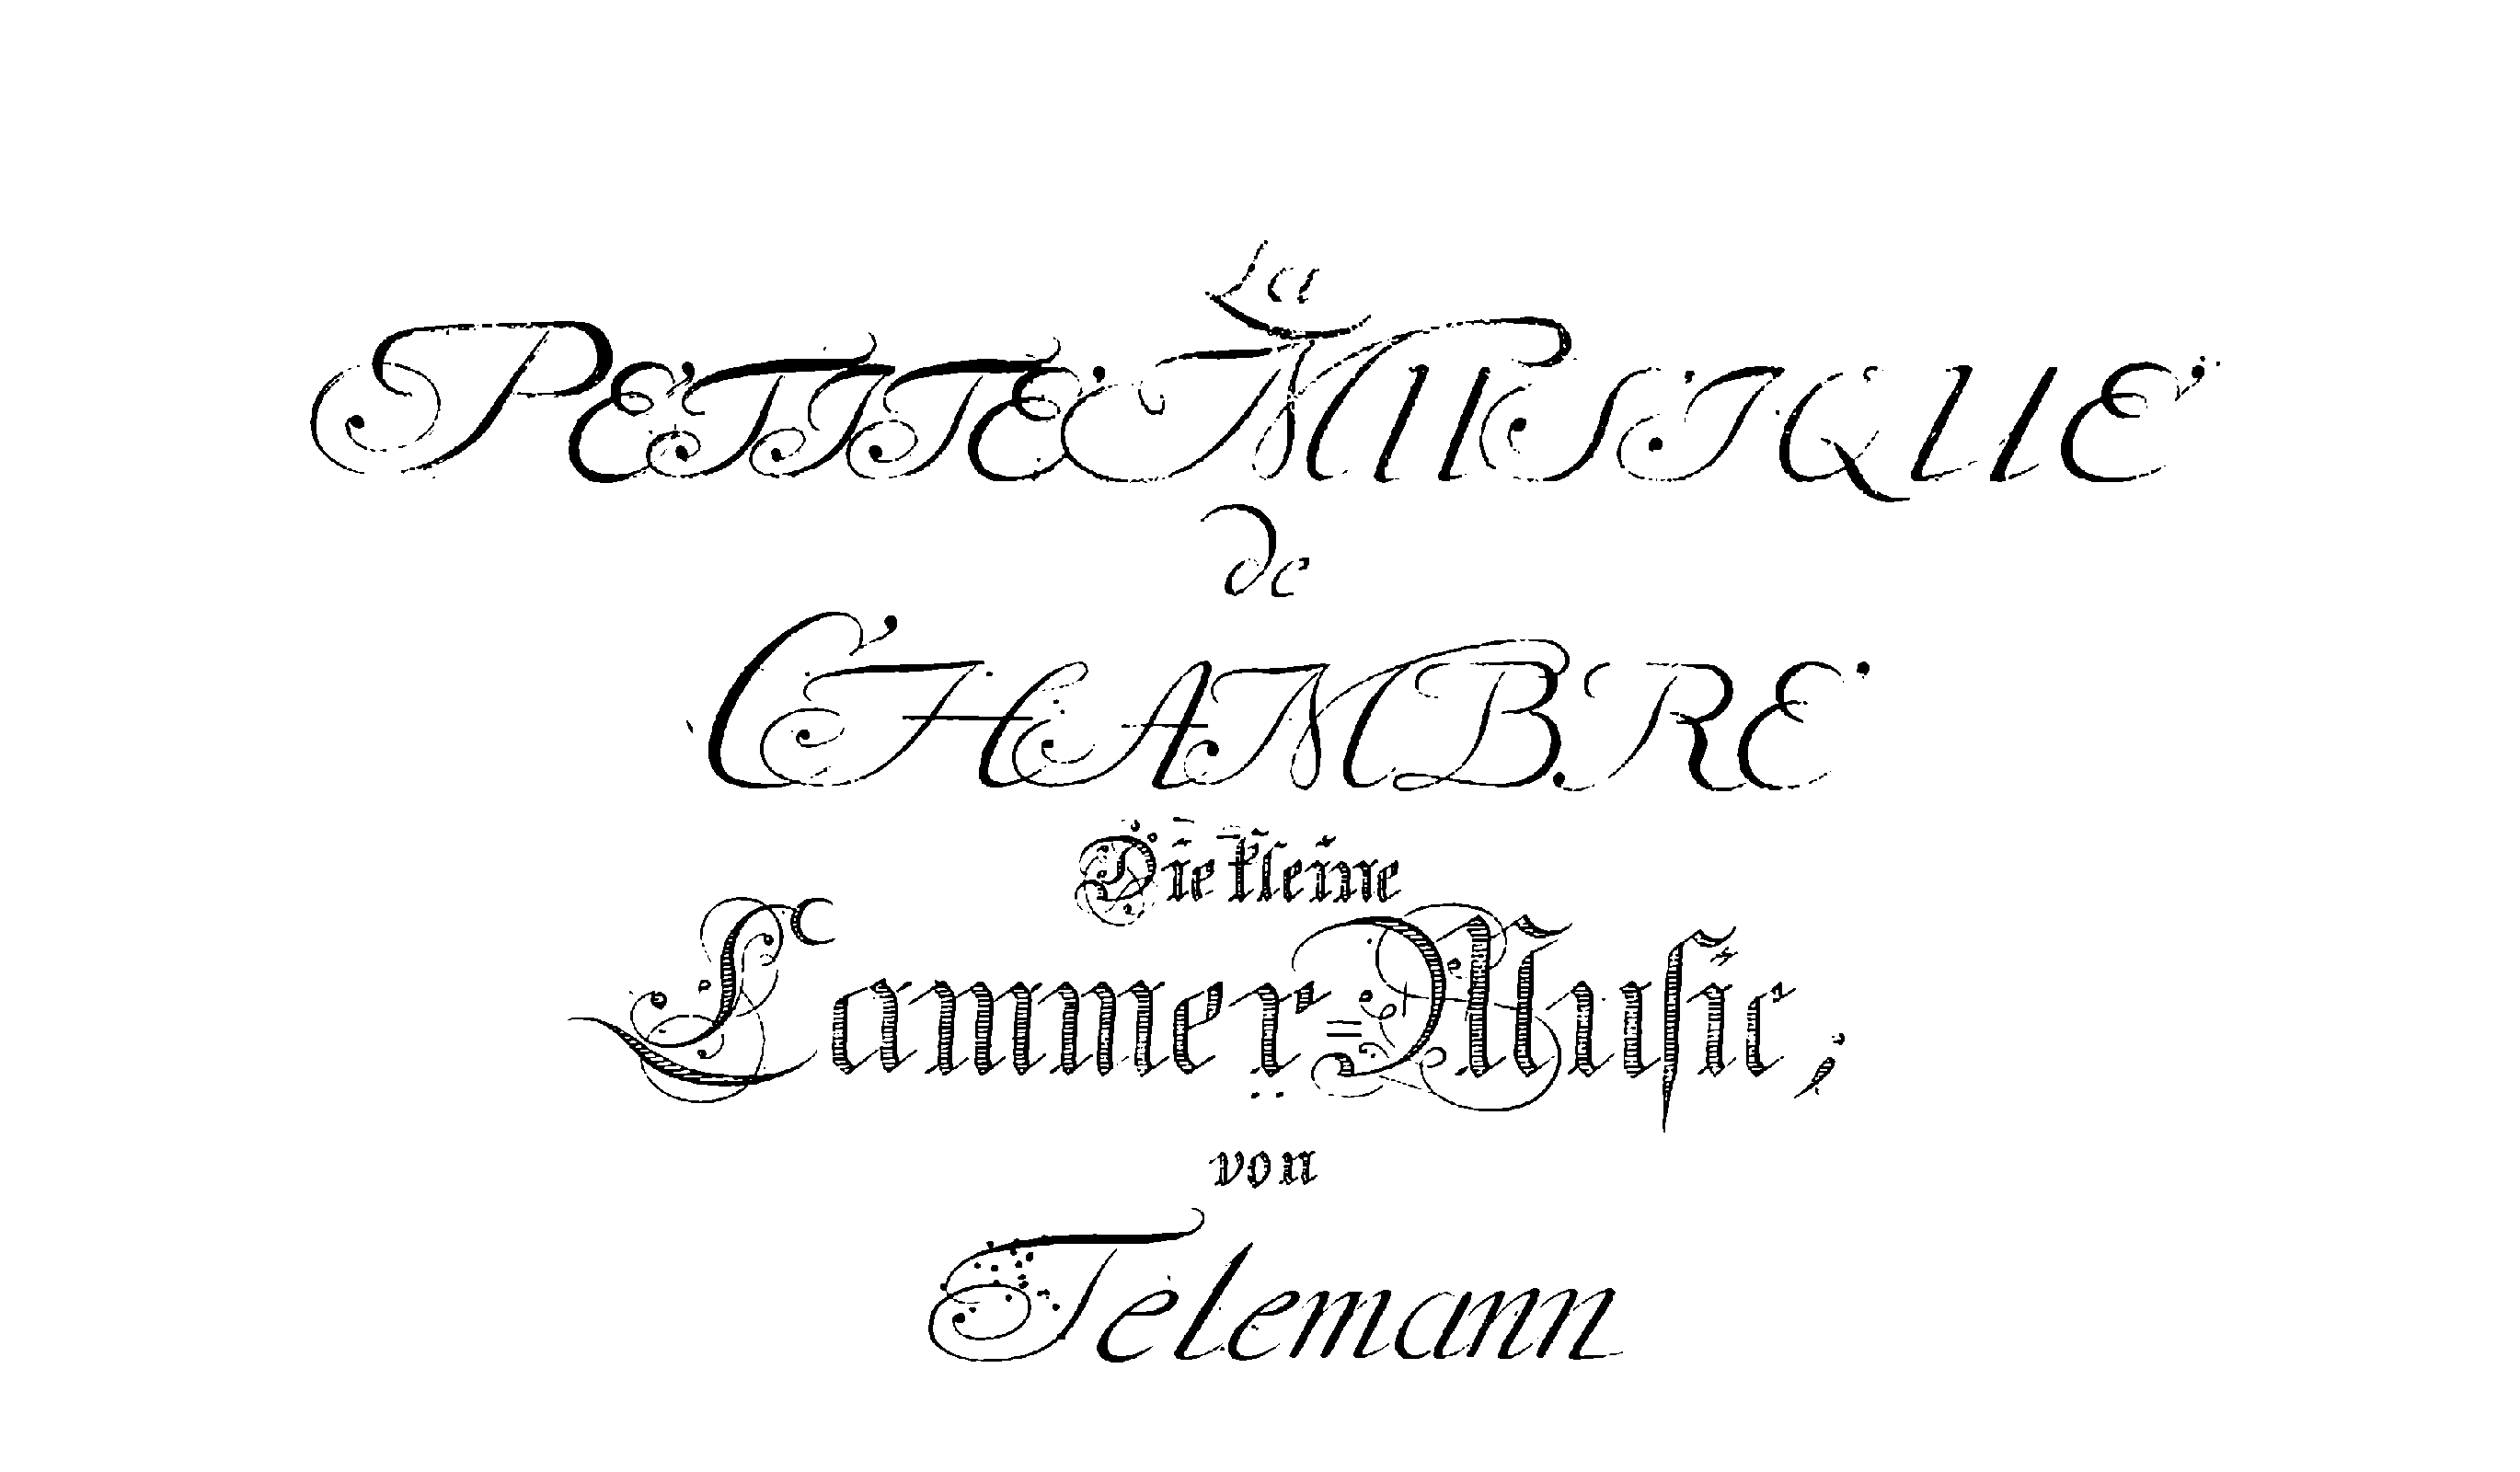 La
PETITE MUSIQUE
de
CHAMBRE
Die kleine
Cammer=Music,
von
Telemann